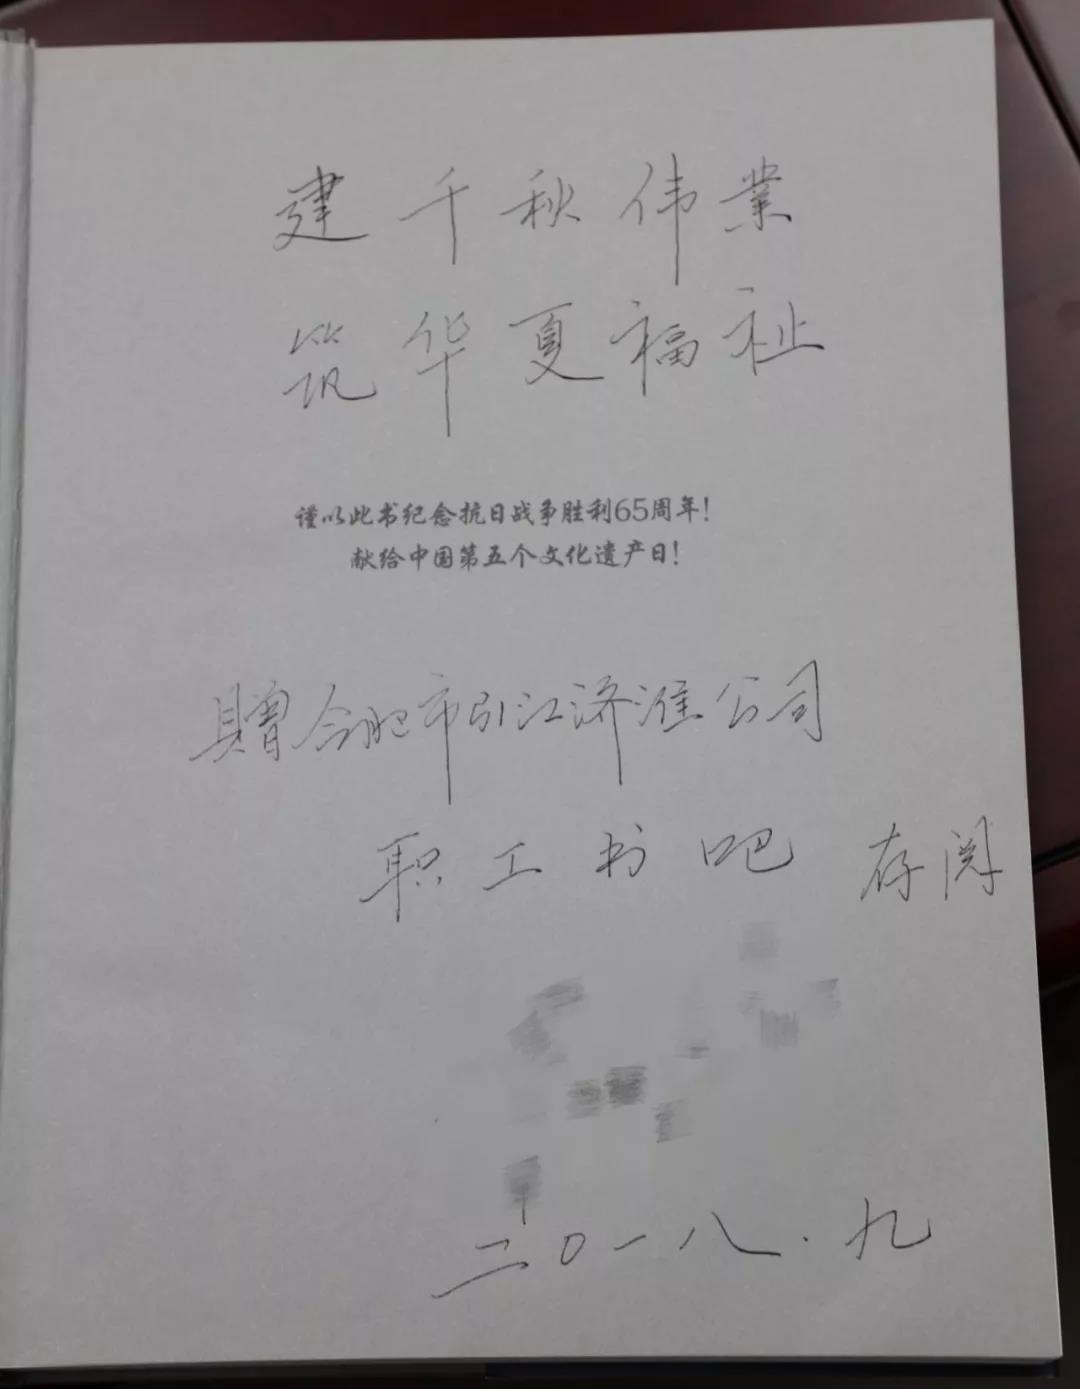 建千秋伟業
筑华夏福祉
谨以此书纪念抗日战争胜利65周年!
献给中国第五个文化遗产日!
赠合肥市引江济淮公司
职工书吧 存阅
二〇一八.九